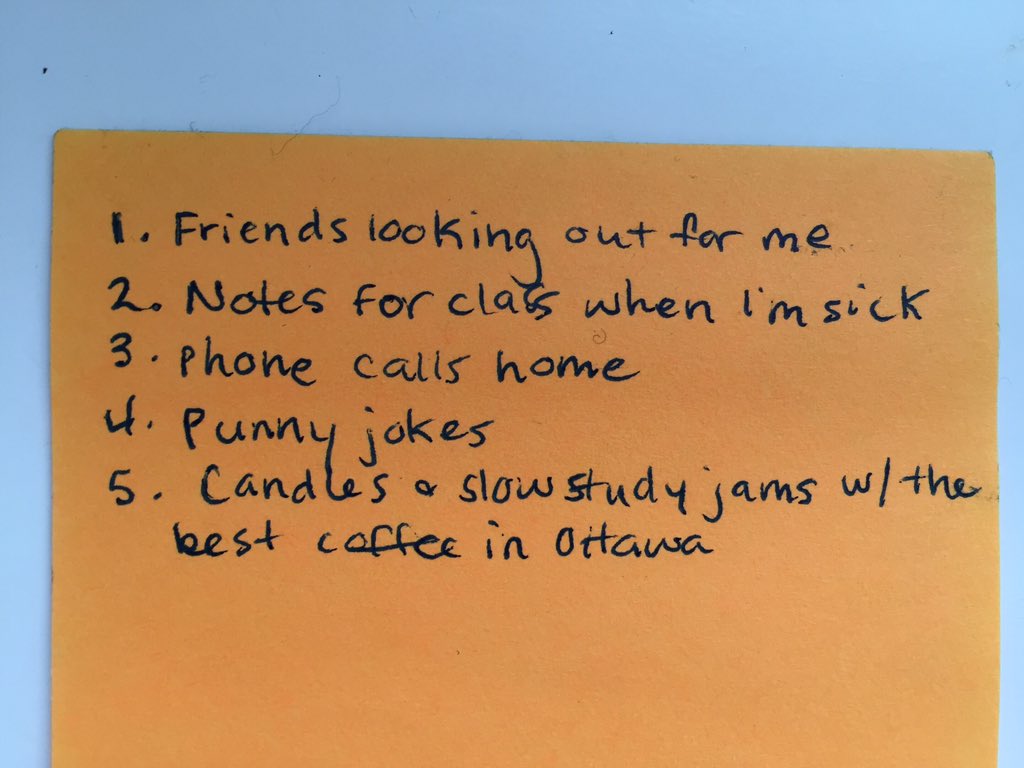 1. Friends looking out for me
2. Notes for class when I'm sick
3. phone calls home
4. punny jokes
5. Candles & slow study jams w/ the
best coffee in Ottawa